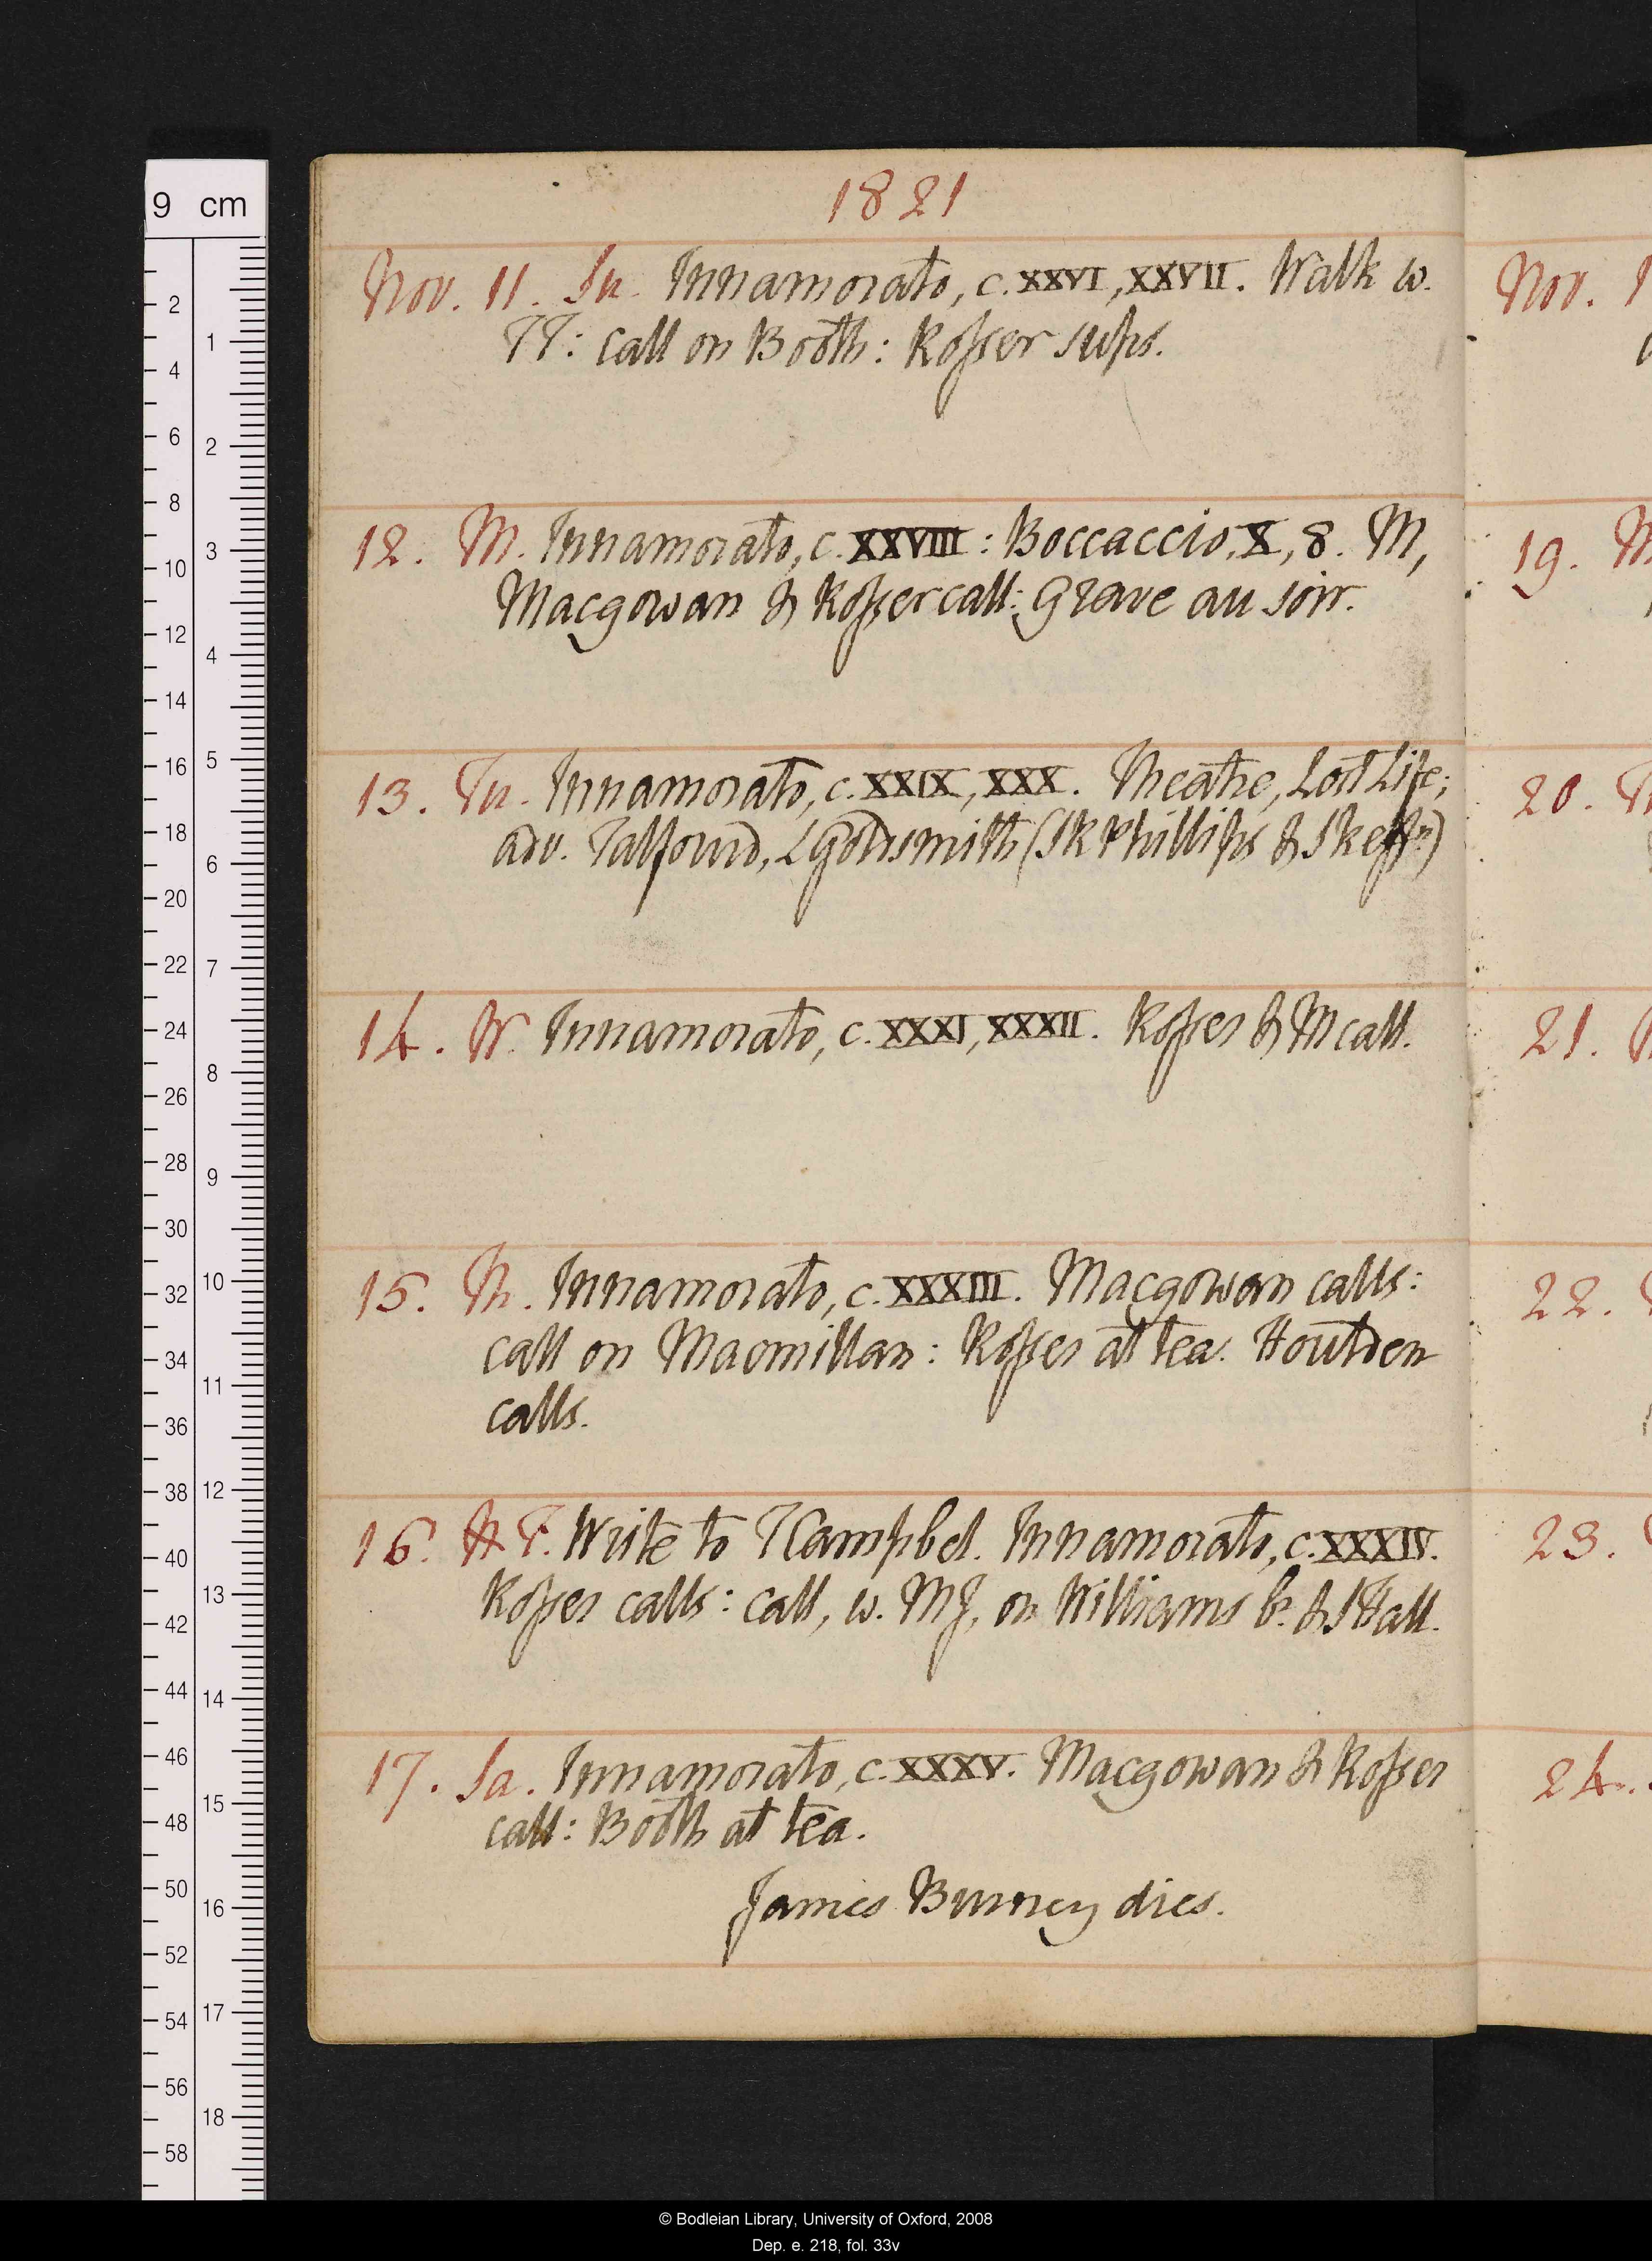 1821
Nov. 11. Su. Innamorato, c. XXVI, XXVII. Walk w.
TT: call on Booth: Rosser sups.
12. M. Innamorato, c. XXVIII: Boccaccio, X, 8. M,
Macgowan & Rosser call: Grave au soir.
13. Tu. Innamorato, c. XXIX, XXX. Theatre, Lost Life;
adv. Talfourd, L Goldsmith (SR Phillips & Skeffn)
14. W. Innamorato, c. XXXI, XXXII. Rosser & M call.
15. Th. Innamorato, c. XXXIII. Macgowan calls:
call on Macmillan: Rosser at tea. Houlden
calls.
16. F. Write to T Campbel. Innamorato, c. XXXIV.
Rosser calls: call, w. MJ, on Williams b. & S Hall.
17. Sa. Innamorato, c. XXXV. Macgowan & Rosser
call: Booth at tea.
James Burney dies.
Nov.
19. M
20. T
21.
22.
23.
24.
9 cm
2 4 6 8 10 12 14 16 18 20 22 24 26 28 30 32 34 36 38 40 42 44 46 48 50 52 54 56 58
1 2 3 4 5 6 7 8 9 10 11 12 13 14 15 16 17 18
© Bodleian Library, University of Oxford, 2008
Dep. e. 218, fol. 33v